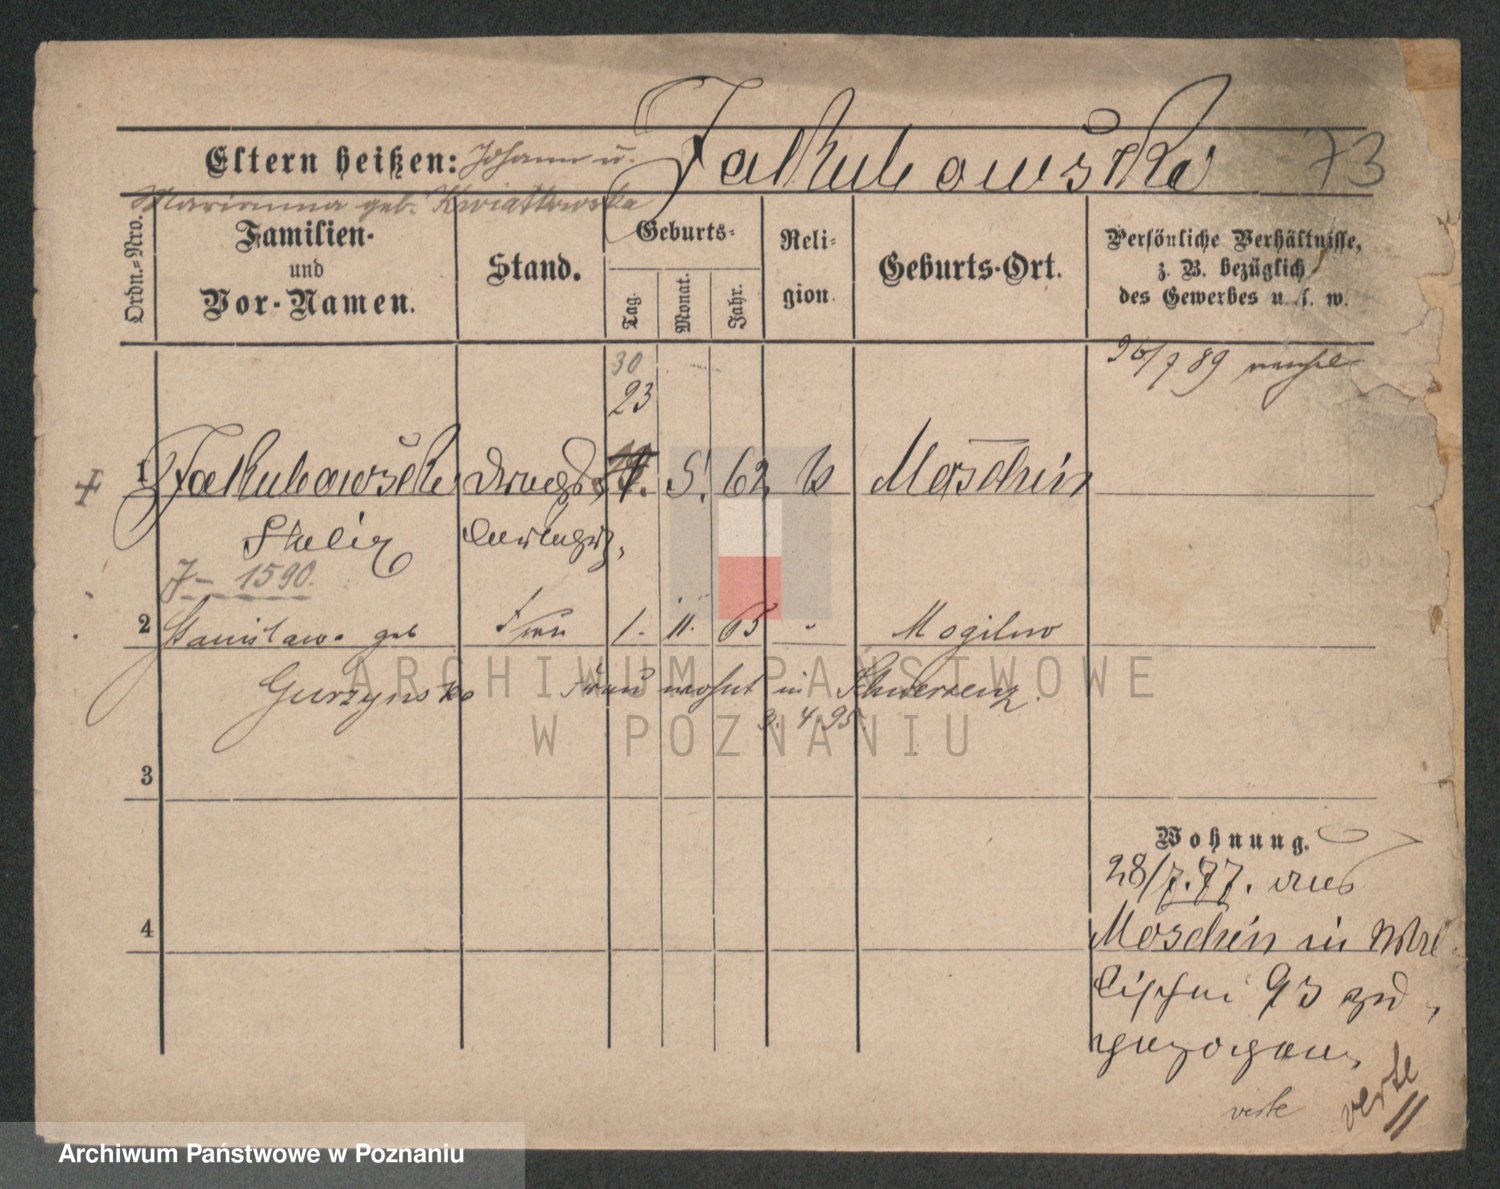 Jakubowski 73
Eltern heißen: Johann u.
Marianna geb. Kwiatkowska
Ordn.-Nro.
Familien-
und
Vor-Namen.
Stand.
Geburts-
Tag.
Monat.
Jahr.
Reli-
gion.
Geburts-Ort.
Persönliche Verhältnisse,
z. B. bezüglich
des Gewerbes u. s. w.
30
23
1 Jakubowski 5. 62 k Moschin
Felix
J- 1590.
2 Stanislawa geb Frau 1. 11. 65 Mogilno
Gurzynska Frau wohnt in Schwersenz.
3. 4. 95.
3
4
Wohnung.
28/7. 77. aus
Moschin in
93 zu
gezogen
verte
verte
ARCHIWUM PAŃSTWOWE
W POZNANIU
Archiwum Państwowe w Poznaniu